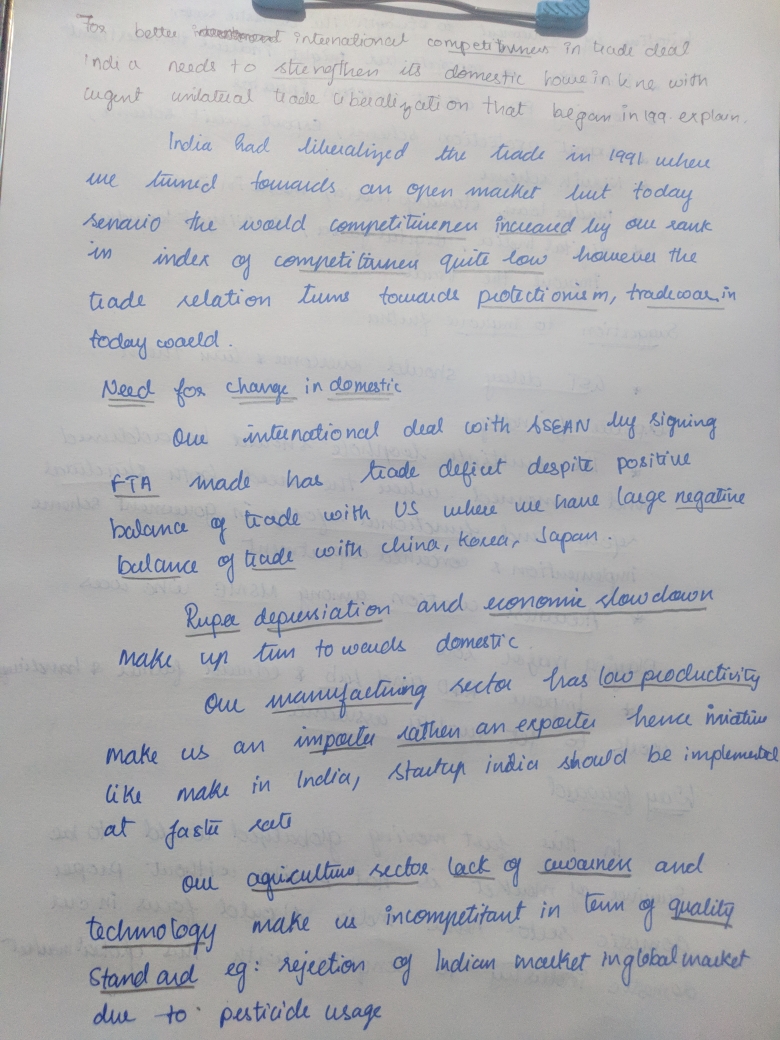 For better international competitivness in trade deal
India needs to strengthen its domestic home in line with
urgent unilateral trade liberalization that began in 199. explain.
India had liberalized the trade in 1991 where
we turned towards an open market but today
senario the world competitivenen increased by our rank
in index of competitivnen quite low however the
trade relation turns towards protectionism, tradewar in
today world.
Need for change in domestic
Our international deal with ASEAN by signing
FTA made has trade deficit despite positive
balance of trade with US where we have large negative
balance of trade with china, Korea, Japan.
Rupee depreciation and economic slowdown
make up turn towards domestic
Our manufacturing sector has low productivity
make us an importer rather an exporter hence iniative
like make in India, startup india should be implemented
at faster rate
Our agriculture sector lack of awarnen and
technology make us incompetitant in term of quality
Standard eg: rejection of Indian market in global market
due to pesticide usage